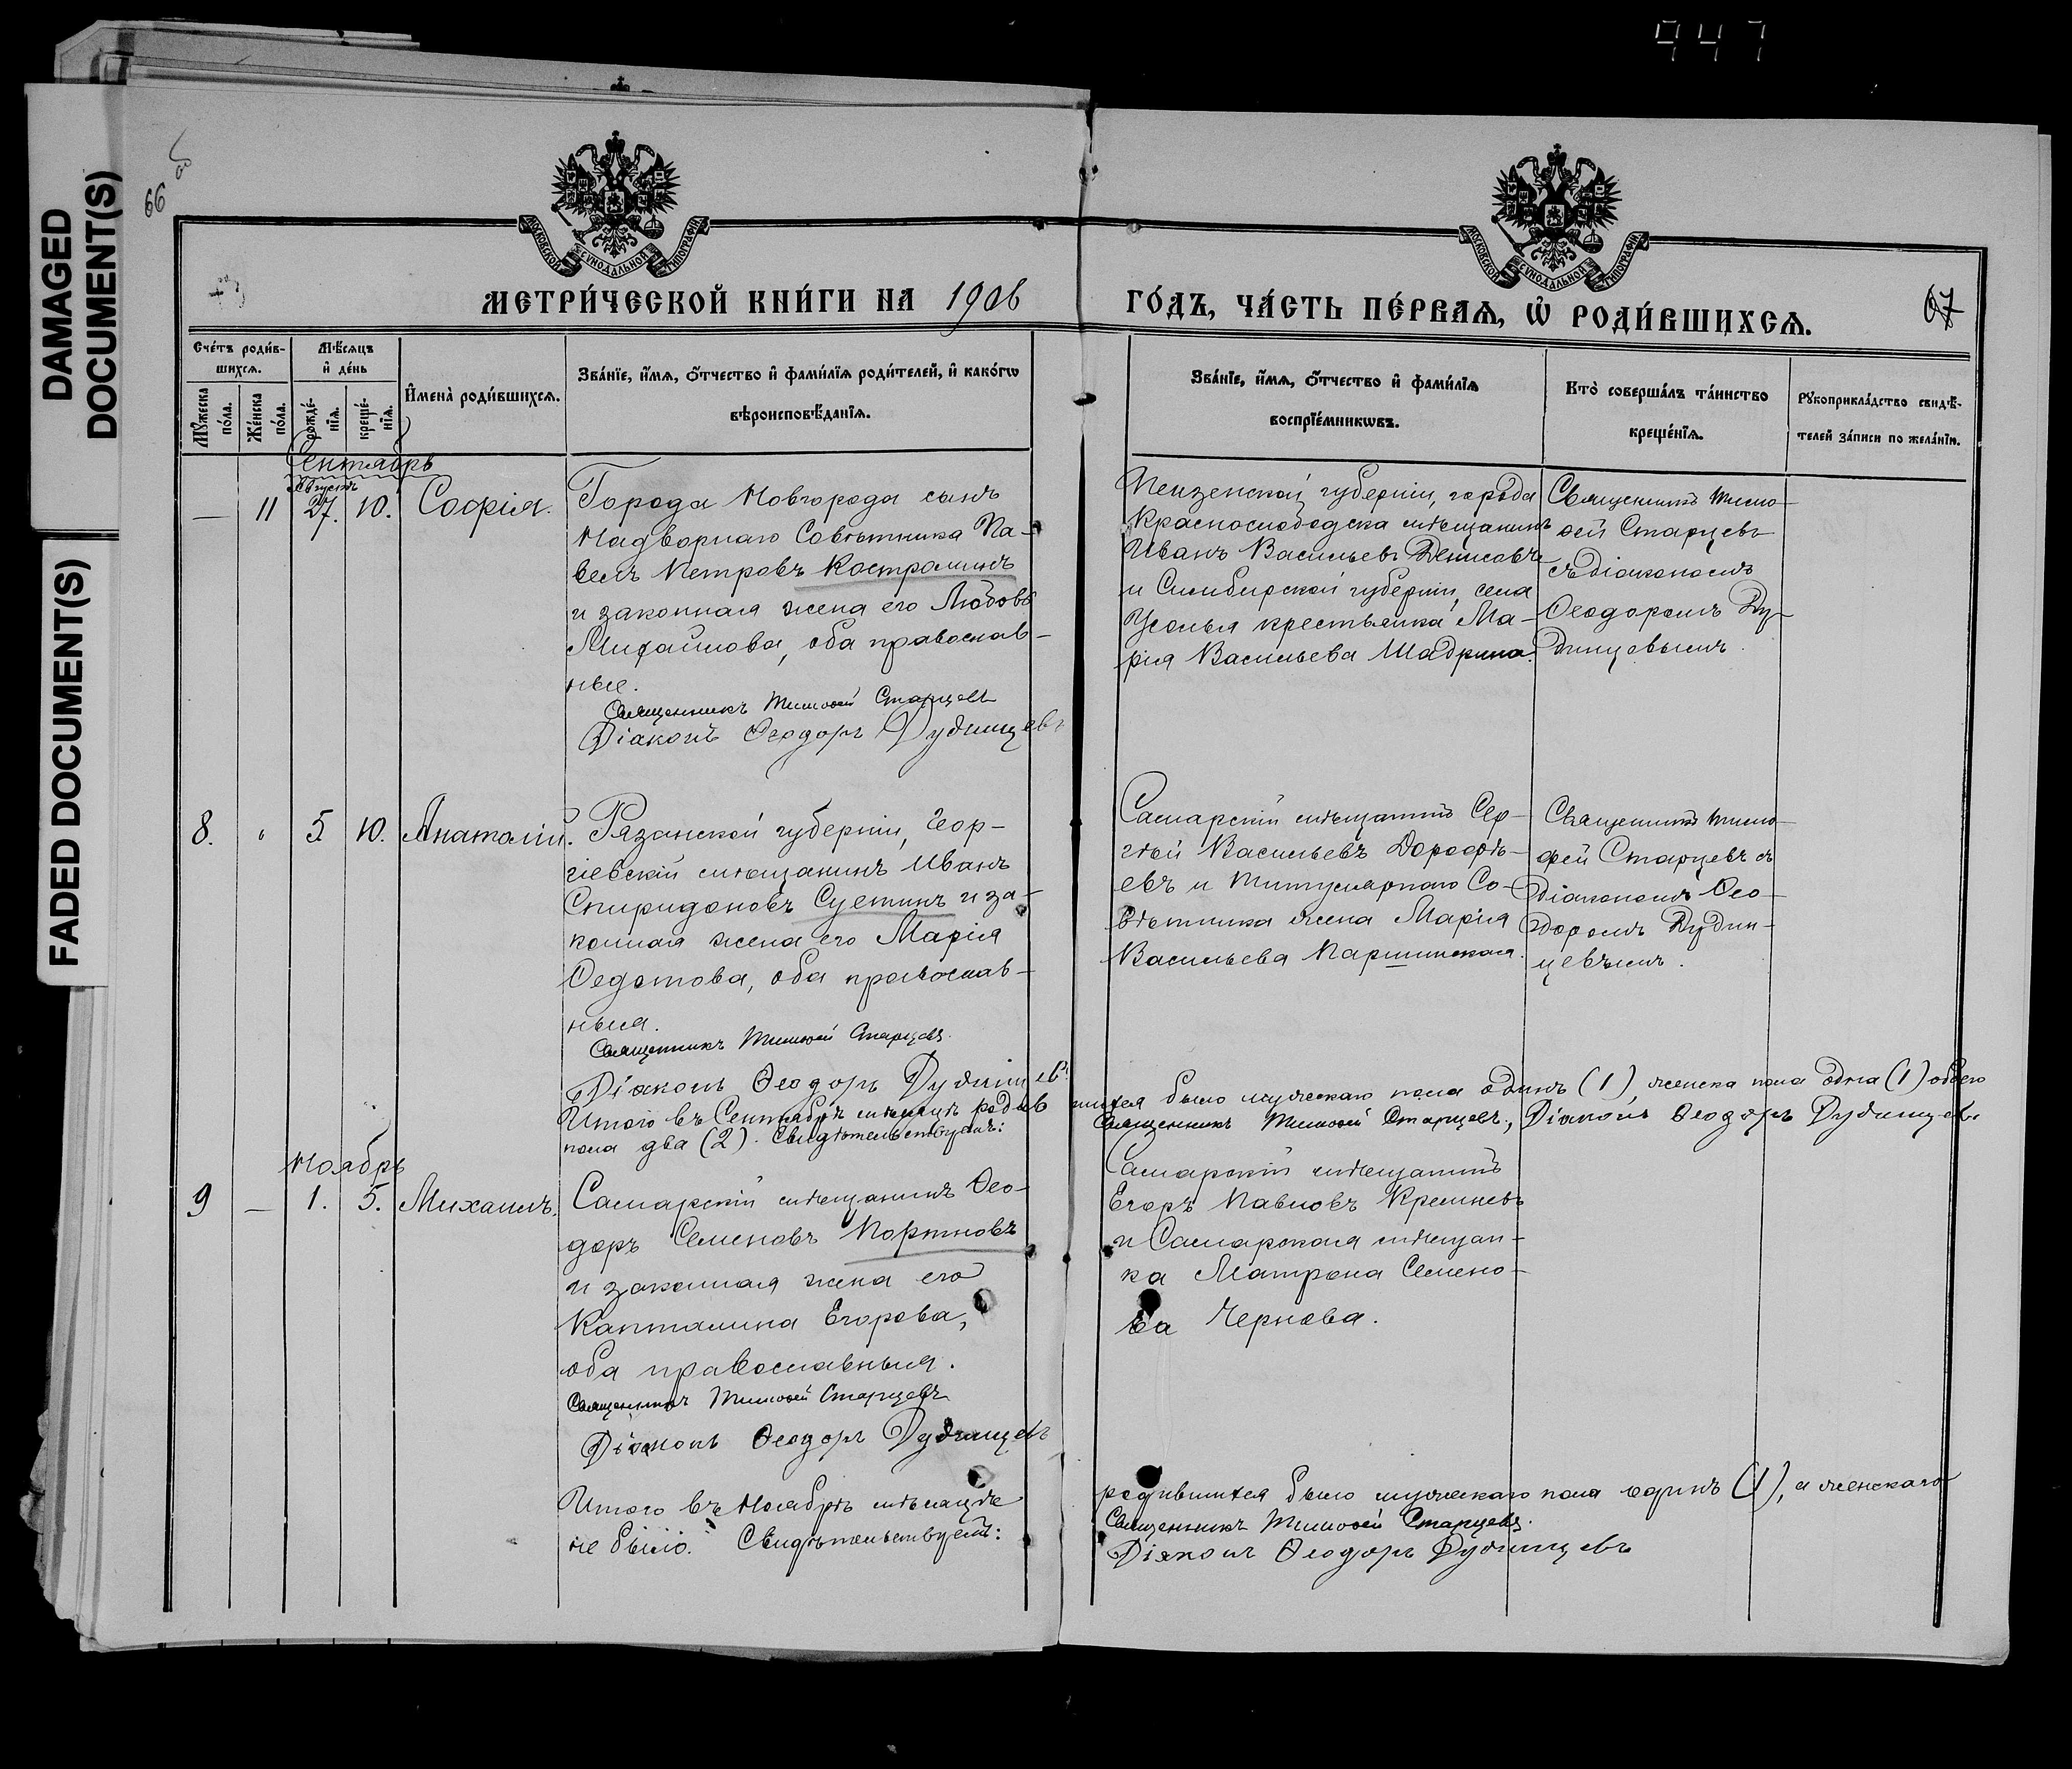 947
DAMAGED
DOCUMENT(S)
FADED DOCUMENT(S)
66 об
67
МОСКОВСКОЙ СѴНОДАЛЬНОЙ ТИПОГРАФІИ
МОСКОВСКОЙ СѴНОДАЛЬНОЙ ТИПОГРАФІИ
МЕТРИ́ЧЕСКОЙ КНИ́ГИ НА 1906 ГО́ДЪ, ЧА́СТЬ ПЕ́РВАѦ, Ѡ҆ РОДИ́ВШИХСѦ.
Сче́тъ роди́в-
шихсѧ.
Мꙋ́жеска по́ла.
Же́нска по́ла.
Мѣ́сѧцъ
и҆ де́нь
рожде́-
нїѧ.
креще́-
нїѧ.
И҆мена̀ роди́вшихсѧ.
Зва́нїе, и҆́мѧ, ѻ҆́тчество и҆ фами́лїѧ роди́телей, и҆ како́гѡ
вѣроисповѣ́данїѧ.
Зва́нїе, и҆́мѧ, ѻ҆́тчество и҆ фами́лїѧ
воспрїе́мникѡвъ.
Кто̀ соверша́лъ та́инство
креще́нїѧ.
Рꙋкоприкла́дство свидѣ́-
телей за́писи по жела́нїю.
Сентябрь
Августъ
— 11 27. 10. Софія.
Города Новгорода сынъ
Надворнаго Совѣтника Па-
велъ Петровъ Костроминъ
и законная жена его Любовь
Михайлова, оба православ-
ные.
Священникъ Тимоѳей Старцевъ
Діаконъ Ѳеодоръ Дудинцевъ
Пензенской губерніи, города
Краснослободска мѣщанинъ
Иванъ Васильевъ Денисовъ
и Симбирской губерніи, села
Усолья крестьянка Ма-
рія Васильева Шадрина.
Священникъ Тимо-
ѳей Старцевъ
съ діакономъ
Ѳеодоромъ Ду-
динцевымъ.
8. " 5 10. Анатолій.
Рязанской губерніи, Геор-
гіевскій мѣщанинъ Иванъ
Спиридоновъ Суетинъ и за-
конная жена его Марія
Ѳедотова, оба православ-
ныя.
Священникъ Тимоѳей Старцевъ.
Діаконъ Ѳеодоръ Дудинцевъ
Самарскій мѣщанинъ Сер-
гѣй Васильевъ Дорофѣ-
евъ и Титулярнаго Со-
вѣтника жена Марія
Васильева Паршинская.
Священникъ Тимо-
ѳей Старцевъ съ
діакономъ Ѳео-
доромъ Дудин-
цевымъ.
Итого въ Сентябрѣ мѣсяцѣ родив шихся было мужескаго пола одинъ (1), женска пола одна (1) обоего
пола два (2). Свидѣтельствуемъ: Священникъ Тимоѳей Старцевъ, Діаконъ Ѳеодоръ Дудинцевъ
Ноябрь
9 — 1. 5. Михаилъ.
Самарскій мѣщанинъ Ѳео-
доръ Семеновъ Портновъ
и законная жена его
Капталина Егорова,
оба православныя.
Священникъ Тимоѳей Старцевъ
Діаконъ Ѳеодоръ Дудинцевъ
Самарскій мѣщанинъ
Егоръ Павловъ Кремневъ
и Самарская мѣщан-
ка Матрона Семено-
ва Чернова.
Итого въ Ноябрѣ мѣсяцѣ родившихся было мужескаго пола единъ (1), а женскаго
не было. Свидѣтельствуемъ: Священникъ Тимоѳей Старцевъ.
Діаконъ Ѳеодоръ Дудинцевъ